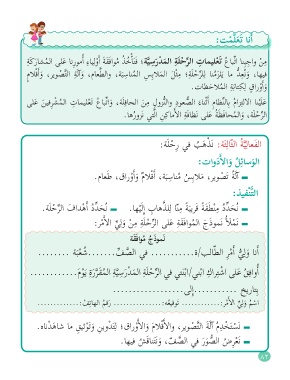 أَنا تَعَلَّمْتُ:
مِنْ واجِبِنا اتِّباعُ تَعْليماتِ الرِّحْلَةِ الْمَدْرَسِيَّةِ؛ فَنَأْخُذُ مُوافَقَةَ أَوْلِياءِ أُمورِنا عَلى الْمُشارَكَةِ
فيها، وَنُعِدُّ ما يَلْزَمُنا لِلرِّحْلَةِ؛ مِثْلَ الْمَلابِسِ الْمُناسِبَةِ، والطَّعامِ، وَآلَةِ التَّصْويرِ، وَأَقْلامٍ
وَأَوْراقٍ لِكِتابَةِ الْمُلاحَظاتِ.
عَلَيْنا الِالتِزامُ بِالنِّظامِ أَثْناءَ الصُّعودِ والنُّزولِ مِنَ الْحافِلَةِ، وَاتِّباعُ تَعْليماتِ الْمُشْرِفينَ عَلى
الرِّحْلَةِ، وَالْمُحافَظَةُ عَلى نَظافَةِ الْأَماكِنِ الَّتي نَزورُها.
الفَعالِيَّةُ الثّالِثَةُ: نَذْهَبُ في رِحْلَةٍ:
الوَسائِلُ وَالأَدَواتُ:
آلَةُ تَصْويرٍ، مَلابِسُ مُناسِبَة، أَقْلامٌ وَأَوْراق، طَعام.
التَّنْفيذُ:
نُحَدِّدُ مِنْطَقَةً قَريبَةً مِنّا لِلذَّهابِ إِلَيْها. نُحَدِّدُ أَهْدافَ الرِّحْلَةِ.
نَمْلَأُ نَموذَجَ الْمُوافَقَةِ عَلى الرِّحْلَةِ مِنْ وَلِيِّ الأَمْرِ:
نَموذَجُ مُوافَقَة
أَنا وَلِيُّ أَمْرِ الطّالِب/ة........... في الصَّفِّ......شُعْبَة ........
أُوافِقُ عَلى اشْتِراكِ ابْني/ابْنَتي في الرِّحْلَةِ الْمَدْرَسِيَّةِ الْمُقَرَّرَةِ يَوْمَ...........
بِتاريخِ ........... إِلى ..........
اسْمُ وَلِيِّ الأَمْرِ:............... تَوْقيعُه:............... رَقمُ الهاتِفِ:...............
نَسْتَخْدِمُ آلَةَ التَّصْويرِ، والأَقْلامَ وَالأَوْراقَ؛ لِتَدْوينِ وَتَوْثيقِ ما شاهَدْناه.
نَعْرِضُ الصُّوَرَ في الصَّفِّ، وَنَتَناقَشُ فيها.
٨٢